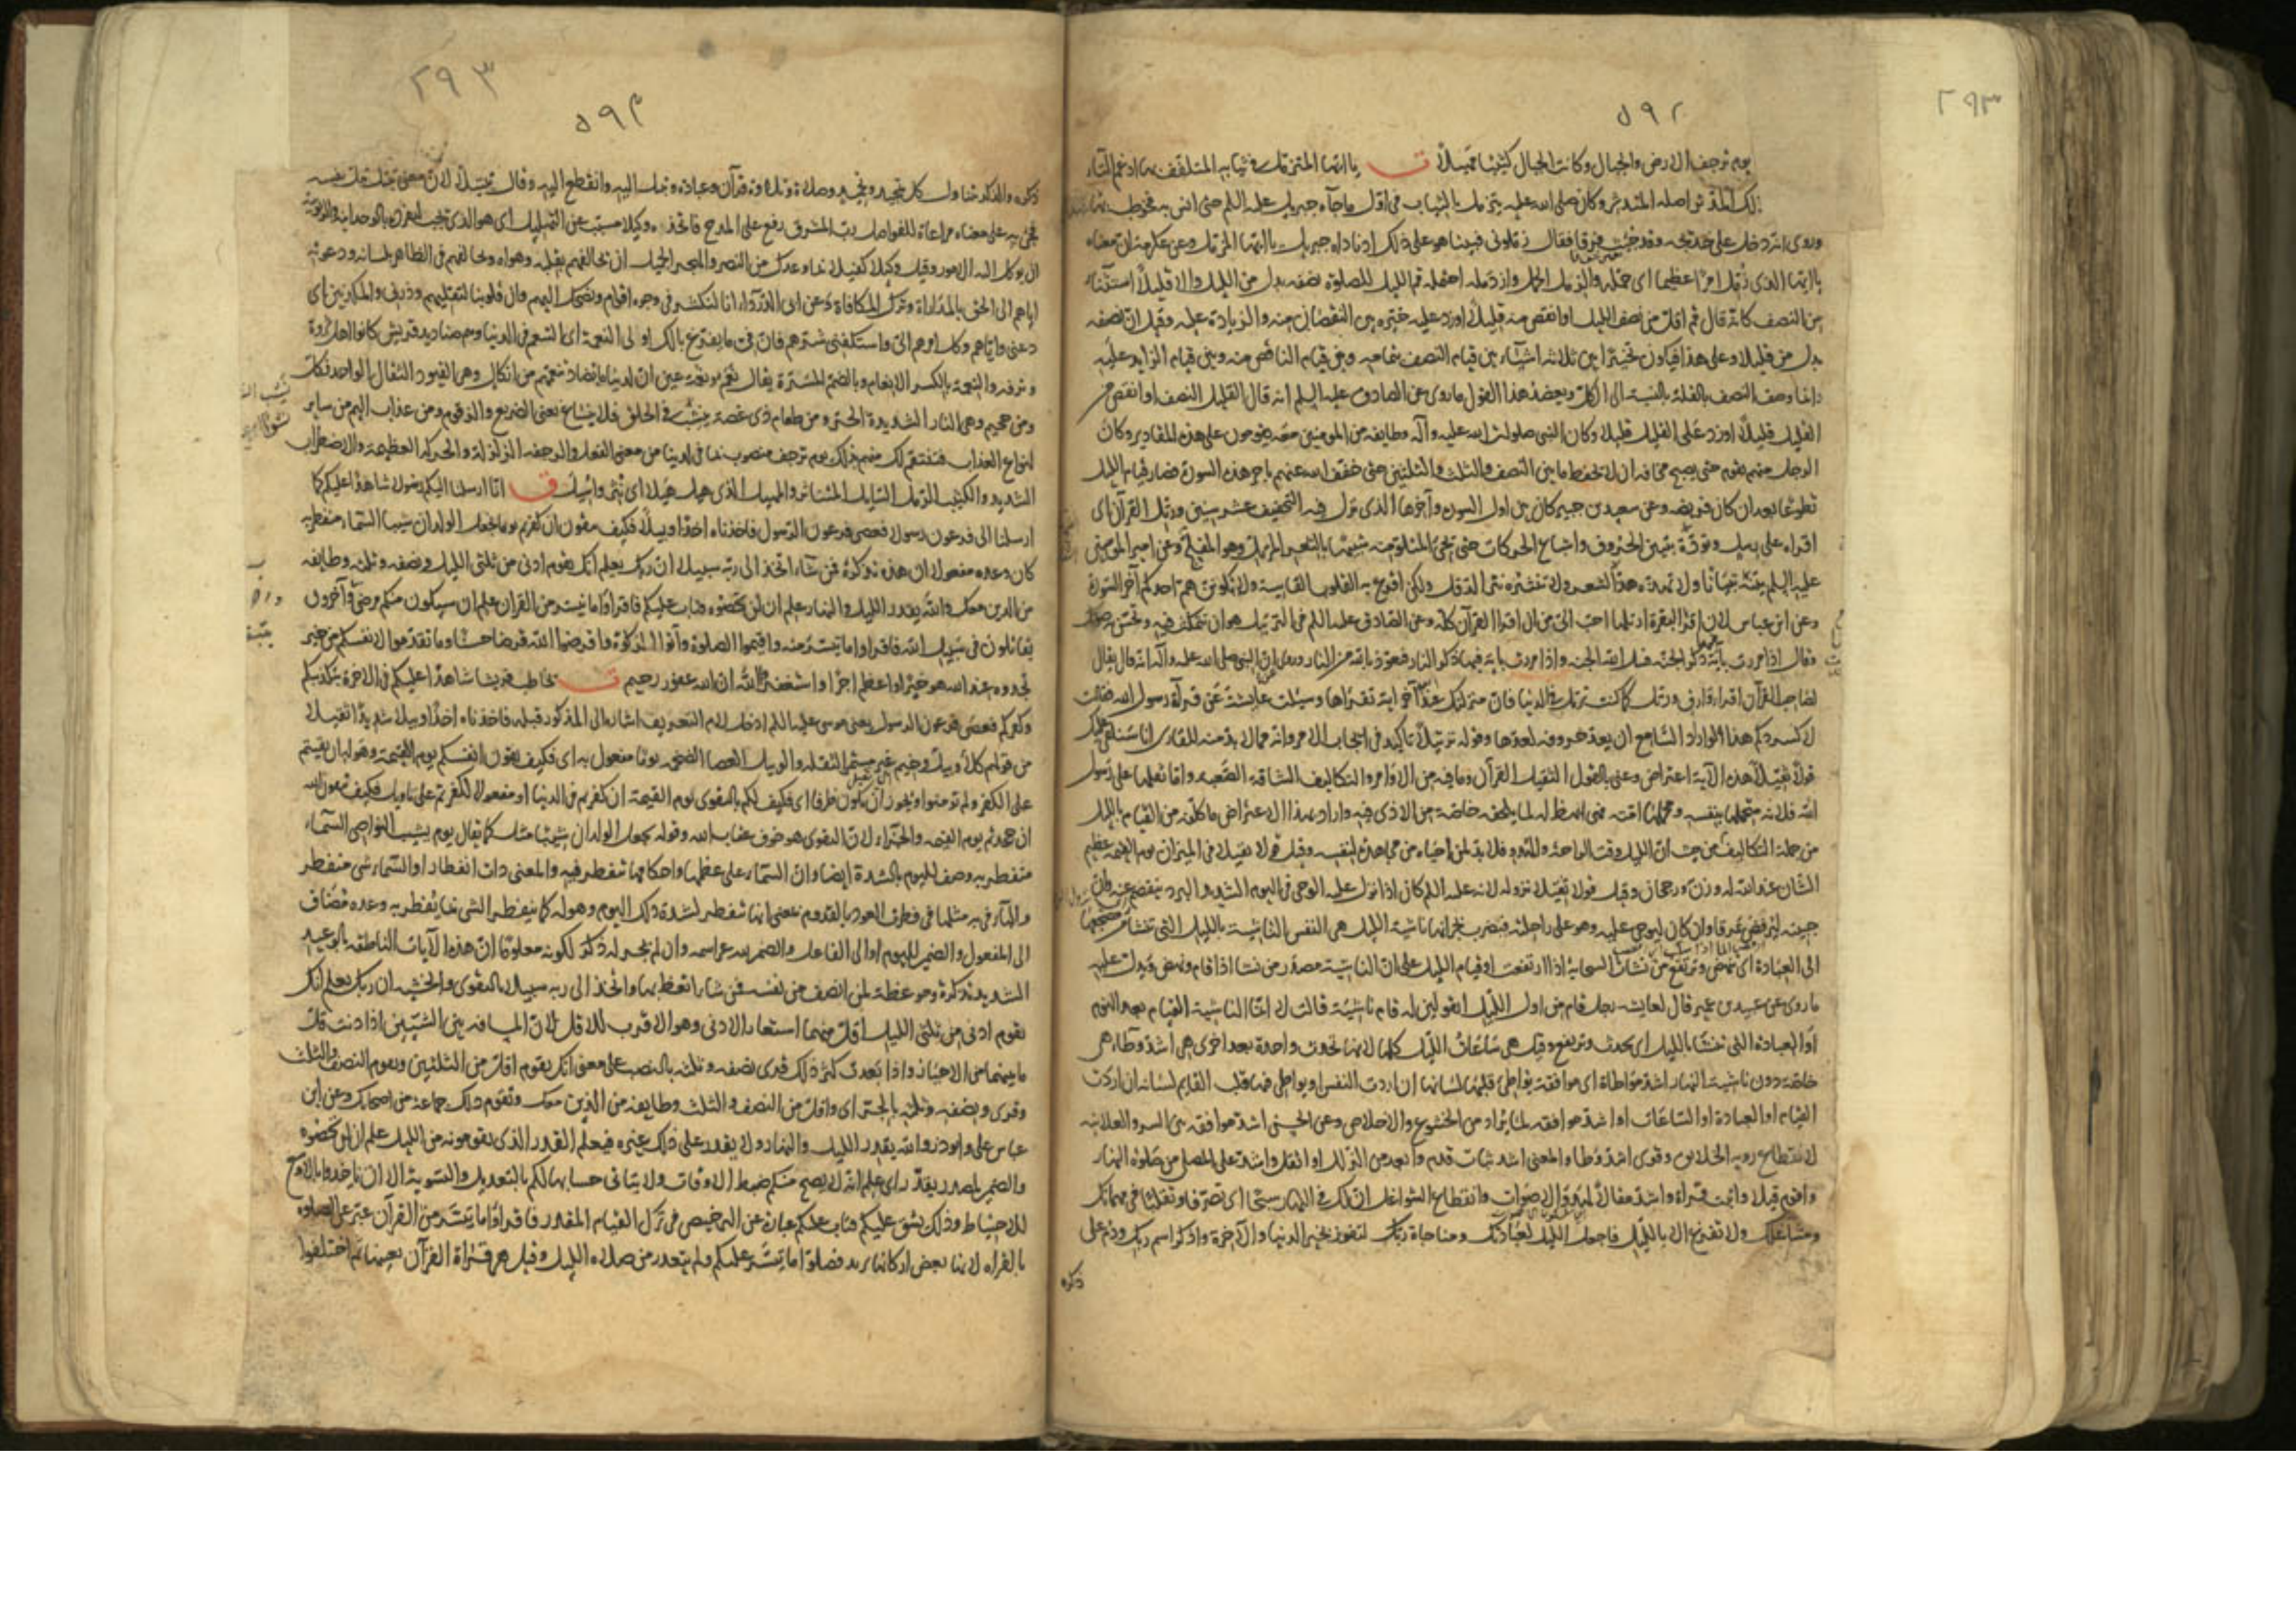 ٥٩٢
٢٩٣
يوم ترجف الارض والجبال وكانت الجبال كثيبا مهيلا ت يا ايها المتزمل في ثيابه المتلفف بها ادغم التاء
وكذلك المدثر اصله المتدثر وكان صلى الله عليه يتزمل بالثياب في اول ما جاءه جبريل عليه السلم حتى انس به فخوطب بهذا
وروى انه دخل على خديجة وقد جئث فرقا فقال زملوني فبينا هو على ذلك اذ ناداه جبريل يا ايها المزمل وعن عكرمة ان معناه
يا ايها الذي زمل امرا عظيما اى حمله والزمل الحمل وازدمله احتمله قم الليل للصلوة نصفه بدل من الليل والا قليلا استثناء
من النصف كانه قال قم اقل من نصف الليل او انقص منه قليلا او زد عليه خيره بين النقصان منه والزيادة عليه وقيل ان نصفه
بدل من قليلا وعلى هذا فيكون تخييرا بين ثلثة اشياء بين قيام النصف بتمامه وبين قيام الناقص منه وبين قيام الزايد عليه
وانما وصف النصف بالقلة بالنسبة الى الكل ويعضد هذا القول ما روى عن الصادق عليه السلم انه قال القليل النصف او انقص من
القليل قليلا او زد على القليل قليلا وكان النبى صلوات الله عليه وآله وطايفة من المومنين معه يقومون على هذه المقادير وكان
الرجل منهم يقوم حتى يصبح مخافة ان لا يحفظ ما بين النصف والثلث والثلثين حتى خفف الله عنهم باخر هذه السورة فصار قيام الليل
تطوعا بعد ان كان فريضة وعن سعيد بن جبير كان بين اول السورة وآخرها الذى نزل فيه التخفيف عشر سنين ورتل القرآن اى
اقراه على تؤدة بتبيين الحروف واشباع الحركات حتى يجئ المتلو منه شبيها بالثغر المرتل وهو المفلج وعن امير المومنين
عليه السلم بينه تبيانا ولا تهذه هذ الشعر ولا تنثره نثر الدقل ولكن اقرع به القلوب القاسية ولا يكونن هم احدكم آخر السورة
وعن ابن عباس لان اقرأ البقرة ارتلها احب الى من ان اقرا القرآن كله وعن الصادق عليه السلم فى الترتيل هو ان تتمكث فيه وتحسن به صوتك
وقال اذا مررت باية فيها ذكر الجنة فسل الله الجنة واذا مررت باية فيها ذكر النار فتعوذ بالله من النار وروى ان النبى صلى الله عليه وآله انه قال يقال
لصاحب القرآن اقرا وارق ورتل كما كنت ترتل فى الدنيا فان منزلتك عند آخر اية تقراها وسئلت عايشة عن قرآة رسول الله فقالت
لا كسردكم هذا لو اراد السامع ان يعد حروفه لعدها وقوله ترتيلا تاكيد فى ايجاب الامر وانه مما لا بد منه للقارى انا سنلقى عليك
قولا ثقيلا هذه الآية اعتراض وعنى بالقول الثقيل القرآن وما فيه من الاوامر والتكاليف الشاقة الصعبة واما ثقلها على رسول
الله فلانه متحملها بنفسه ومحملها امته فهى ابهظ له لما يلحقه خاصة من الاذى فيه واراد بهذا الاعتراض ما كلفه من القيام بالليل
من جملة التكاليف من حيث ان الليل وقت الراحة والهدو فلا بد لمن احياه من مجاهدة لنفسه وقيل قولا ثقيلا فى الميزان يوم القيمة عظيم
الشان عند الله له وزن ورجحان وقيل قولا ثقيلا نزوله لانه عليه السلم كان اذا نزل عليه الوحى فى اليوم الشديد البرد ينفصم عنه وان
جبينه ليرفض عرقا وان كان ليوحى عليه وهو على راحلته فتضرب بجرانها ناشئة الليل هى النفس الناشئة بالليل التى تنشأ من مضجعها
الى العبادة اى تنهض وترتفع من نشأت السحابة اذا ارتفعت او قيام الليل على ان الناشئة مصدر من نشا اذا قام ونهض ويدل عليه
ما روى عن عبيد بن عمير قال لعايشة رجل قام من اول الليل اتقولين له قام ناشئة قالت لا انما الناشئة القيام بعد النوم
او العبادة التى تنشا بالليل اى تحدث وترتفع وقيل هى ساعات الليل كلها لانها تحدث واحدة بعد اخرى هى اشد وطاء هى
خاصة دون ناشئة النهار اشد مواطاة اى موافقة يواطئ قلبها لسانها ان اردت النفس او يواطئ فيها قلب القايم لسانه ان اردت
القيام او العبادة او الساعات او اشد موافقة لما يراد من الخشوع والاخلاص وعن الحسن اشد موافقة بين السر والعلانية
لانقطاع روية الخلايق وقرى اشد وطا والمعنى اشد ثبات قدم وابعد من الزلل او اثقل واشد على المصلى من صلوة النهار
واقوم قيلا واثبت قرآة واشد مقالا لهدو الاصوات وانقطاع الشواغل ان لك فى النهار سبحا اى تصرفا وتقلبا فى مهماتك
ومشاغلك ولا تفرغ الا بالليل فاجعل الليل لعبادتك ومناجاة ربك لتفوز بخير الدنيا والآخرة واذكر اسم ربك ودم على
ذكره
٢٩٣
٥٩٣
ذكره والذكر يتناول كل تحميد وتمجيد وصلاة وتلاوة قرآن وعبادة وتبتل اليه وانقطع اليه وقال تبتيلا لان معنى تبتل بتل نفسه
فجئ به على معناه مراعاة للفواصل رب المشرق رفع على المدح فاتخذه وكيلا مسبب عن التهليل اى هو الذى يجب لتفرده بالوحدانية والربوبية
ان يوكل اليه الامور وقيل وكيلا كفيلا بما وعدك من النصر والهجر الجميل ان تخالفهم بقلبه وهواه ويخالفهم فى الظاهر بلسانه ودعوته
اياهم الى الحق بالمداراة وترك المكافاة وعن ابى الدرداء انا لنكشر فى وجوه اقوام ونضحك اليهم وان قلوبنا لتقليهم وذرنى والمكذبين اى
دعنى واياهم وكل امرهم الى واستكفنى شرهم فان فى ما يفرغ بالك اولى النعمة اى التنعم فى الدنيا وهم صناديد قريش كانوا اهل ثروة
وترفه والنعمة بالكسر الانعام وبالضم المسرة يقال نعم ونعمة عين ان لدينا ما يضاد نعمتهم من انكال وهى القيود الثقال الواحد نكل
ومن جحيم وهى النار الشديدة الحر ومن طعام ذى غصة ينشب فى الحلق فلا ينساغ يعنى الضريع والزقوم ومن عذاب اليم من ساير
انواع العذاب فننتقم لك منهم بذلك يوم ترجف منصوب بما فى لدينا من معنى الفعل والرجفة الزلزلة والحركة العظيمة والاضطراب
الشديد والكثيب الرمل السايل المتناثر والمهيل الذى هيل هيلا اى نثر واسيل ق انا ارسلنا اليكم رسولا شاهدا عليكم كما
ارسلنا الى فرعون رسولا فعصى فرعون الرسول فاخذناه اخذا وبيلا فكيف تتقون ان كفرتم يوما يجعل الولدان شيبا السماء منفطر به
كان وعده مفعولا ان هذه تذكرة فمن شاء اتخذ الى ربه سبيلا ان ربك يعلم انك تقوم ادنى من ثلثى الليل ونصفه وثلثه وطايفة
من الذين معك والله يقدر الليل والنهار علم ان لن تحصوه فتاب عليكم فاقراوا ما تيسر من القران علم ان سيكون منكم مرضى وآخرون
يقاتلون فى سبيل الله فاقراوا ما تيسر منه واقيموا الصلوة وآتوا الزكوة واقرضوا الله قرضا حسنا وما تقدموا لانفسكم من خير
تجدوه عند الله هو خيرا واعظم اجرا واستغفروا الله ان الله غفور رحيم ت يخاطب قريشا شاهدا عليكم فى الاخرة بتكذيبكم
وكفركم فعصى فرعون الرسول يعنى موسى عليه السلم ادخل لام التعريف اشارة الى المذكور قبله فاخذناه اخذا وبيلا شديدا ثقيلا
من قولهم كلأ وبيل وخيم غير مستمر لثقله والوبيل العصا الضخمة يوما مفعول به اى فكيف تتقون انفسكم يوم القيمة وهوله ان بقيتم
على الكفر ولم تومنوا ويجوز ان يكون ظرفا اى فكيف لكم بالتقوى يوم القيمة ان كفرتم فى الدنيا او مفعولا لكفرتم على تاويل فكيف تتقون الله
ان جحدتم يوم القيمة والجزاء لان التقوى هو خوف عقاب الله وقوله يجعل الولدان شيبا مثل كما يقال يوم يشيب النواصى السماء
منفطر به وصف لليوم بالشدة ايضا وان السماء على عظمها واحكامها تنفطر فيه والمعنى ذات انفطار او السماء شئ منفطر
والباء فى به مثلها فى فطرت العود بالقدوم يعنى انها تنفطر لشدة ذلك اليوم وهوله كما ينفطر الشئ بما يفطر به وعده مضاف
الى المفعول والضمير لليوم او الى الفاعل والضمير لله عز اسمه وان لم يجر له ذكر لكونه معلوما ان هذه الآيات الناطقة بالوعيد
الشديد تذكرة وموعظة لمن انصف من نفسه فمن شاء اتعظ بها واتخذ الى ربه سبيلا بالتقوى والخشية ان ربك يعلم انك
تقوم ادنى من ثلثى الليل اقل منهما استعار الادنى وهو الاقرب للاقل لان المسافة بين الشيئين اذا دنت قل
ما بينهما من الاحياز واذا بعدت كثر ذلك قرى نصفه وثلثه بالنصب على معنى انك تقوم اقل من الثلثين وتقوم النصف والثلث
وقرى ونصفه وثلثه بالجر اى واقل من النصف والثلث وطايفة من الذين معك وتقوم ذلك جماعة من اصحابك وعن ابن
عباس على وابو ذر والله يقدر الليل والنهار ولا يقدر على ذلك غيره فيعلم القدر الذى تقومونه من الليل علم ان لن تحصوه
والضمير لمصدر يقدر اى علم انه لا يصح منكم ضبط الاوقات ولا يتاتى حسابها لكم بالتعديل والتسوية الا ان تاخذوا بالاوسع
للاحتياط وذلك يشق عليكم فتاب عليكم عبارة عن الترخيص فى ترك القيام المقدر فاقراوا ما تيسر من القرآن عبر عن الصلوة
بالقراة لانها بعض اركانها يريد فصلوا ما تيسر عليكم ولم يتعذر من صلاة الليل وقيل هى قراة القرآن بعينها ثم اختلفوا